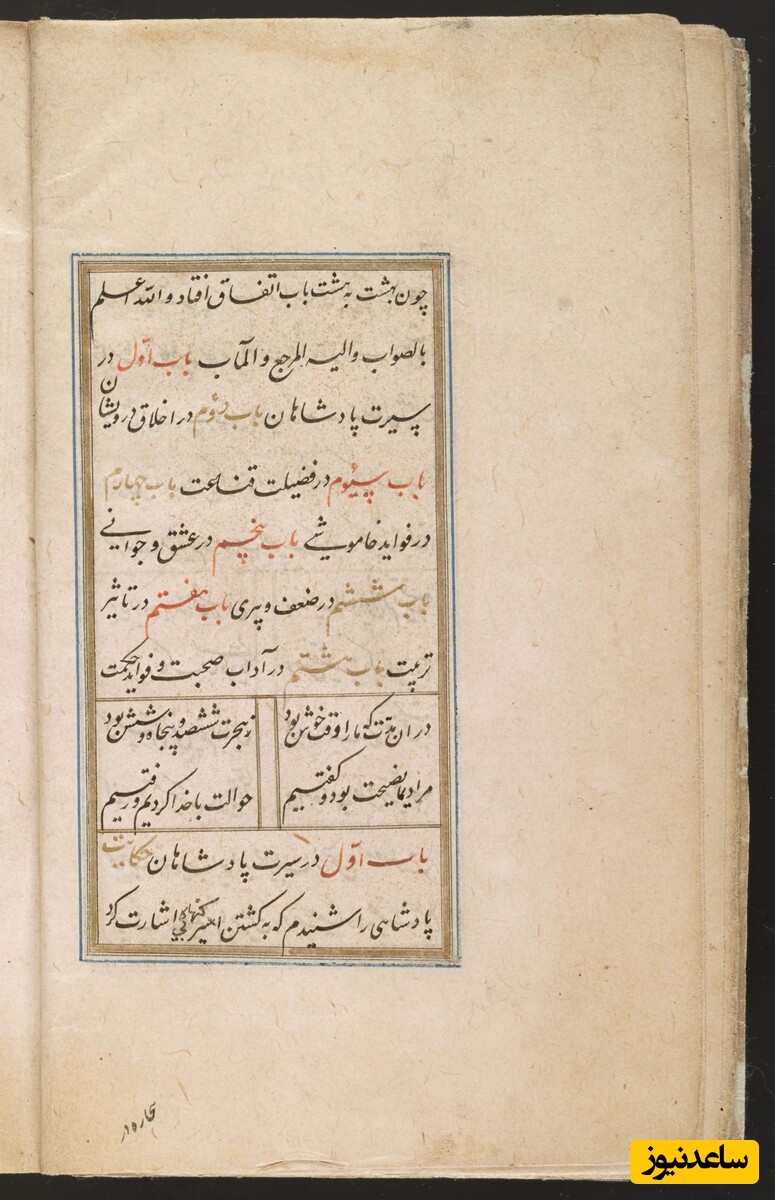 چون بهشت به هشت باب اتفاق افتاد والله اعلم
بالصواب والیه المرجع والمآب باب اوّل در
سیرت پادشاهان باب دوم در اخلاق درویشان
باب سیوم در فضیلت قناعت باب چهارم
در فواید خاموشی باب پنجم در عشق و جوانی
باب ششم در ضعف و پیری باب هفتم در تاثیر
تربیت باب هشتم در آداب صحبت و فواید حکمت
در ان مدّت که ما را وقت خوش بود ز هجرت ششصد و پنجاه و شش بود
مراد ما نصیحت بود و گفتیم حوالت با خدا کردیم و رفتیم
باب اوّل در سیرت پادشاهان حکایت
پادشاهی را شنیدم که به کشتن اسیر اشارت کرد
ساعدنیوز